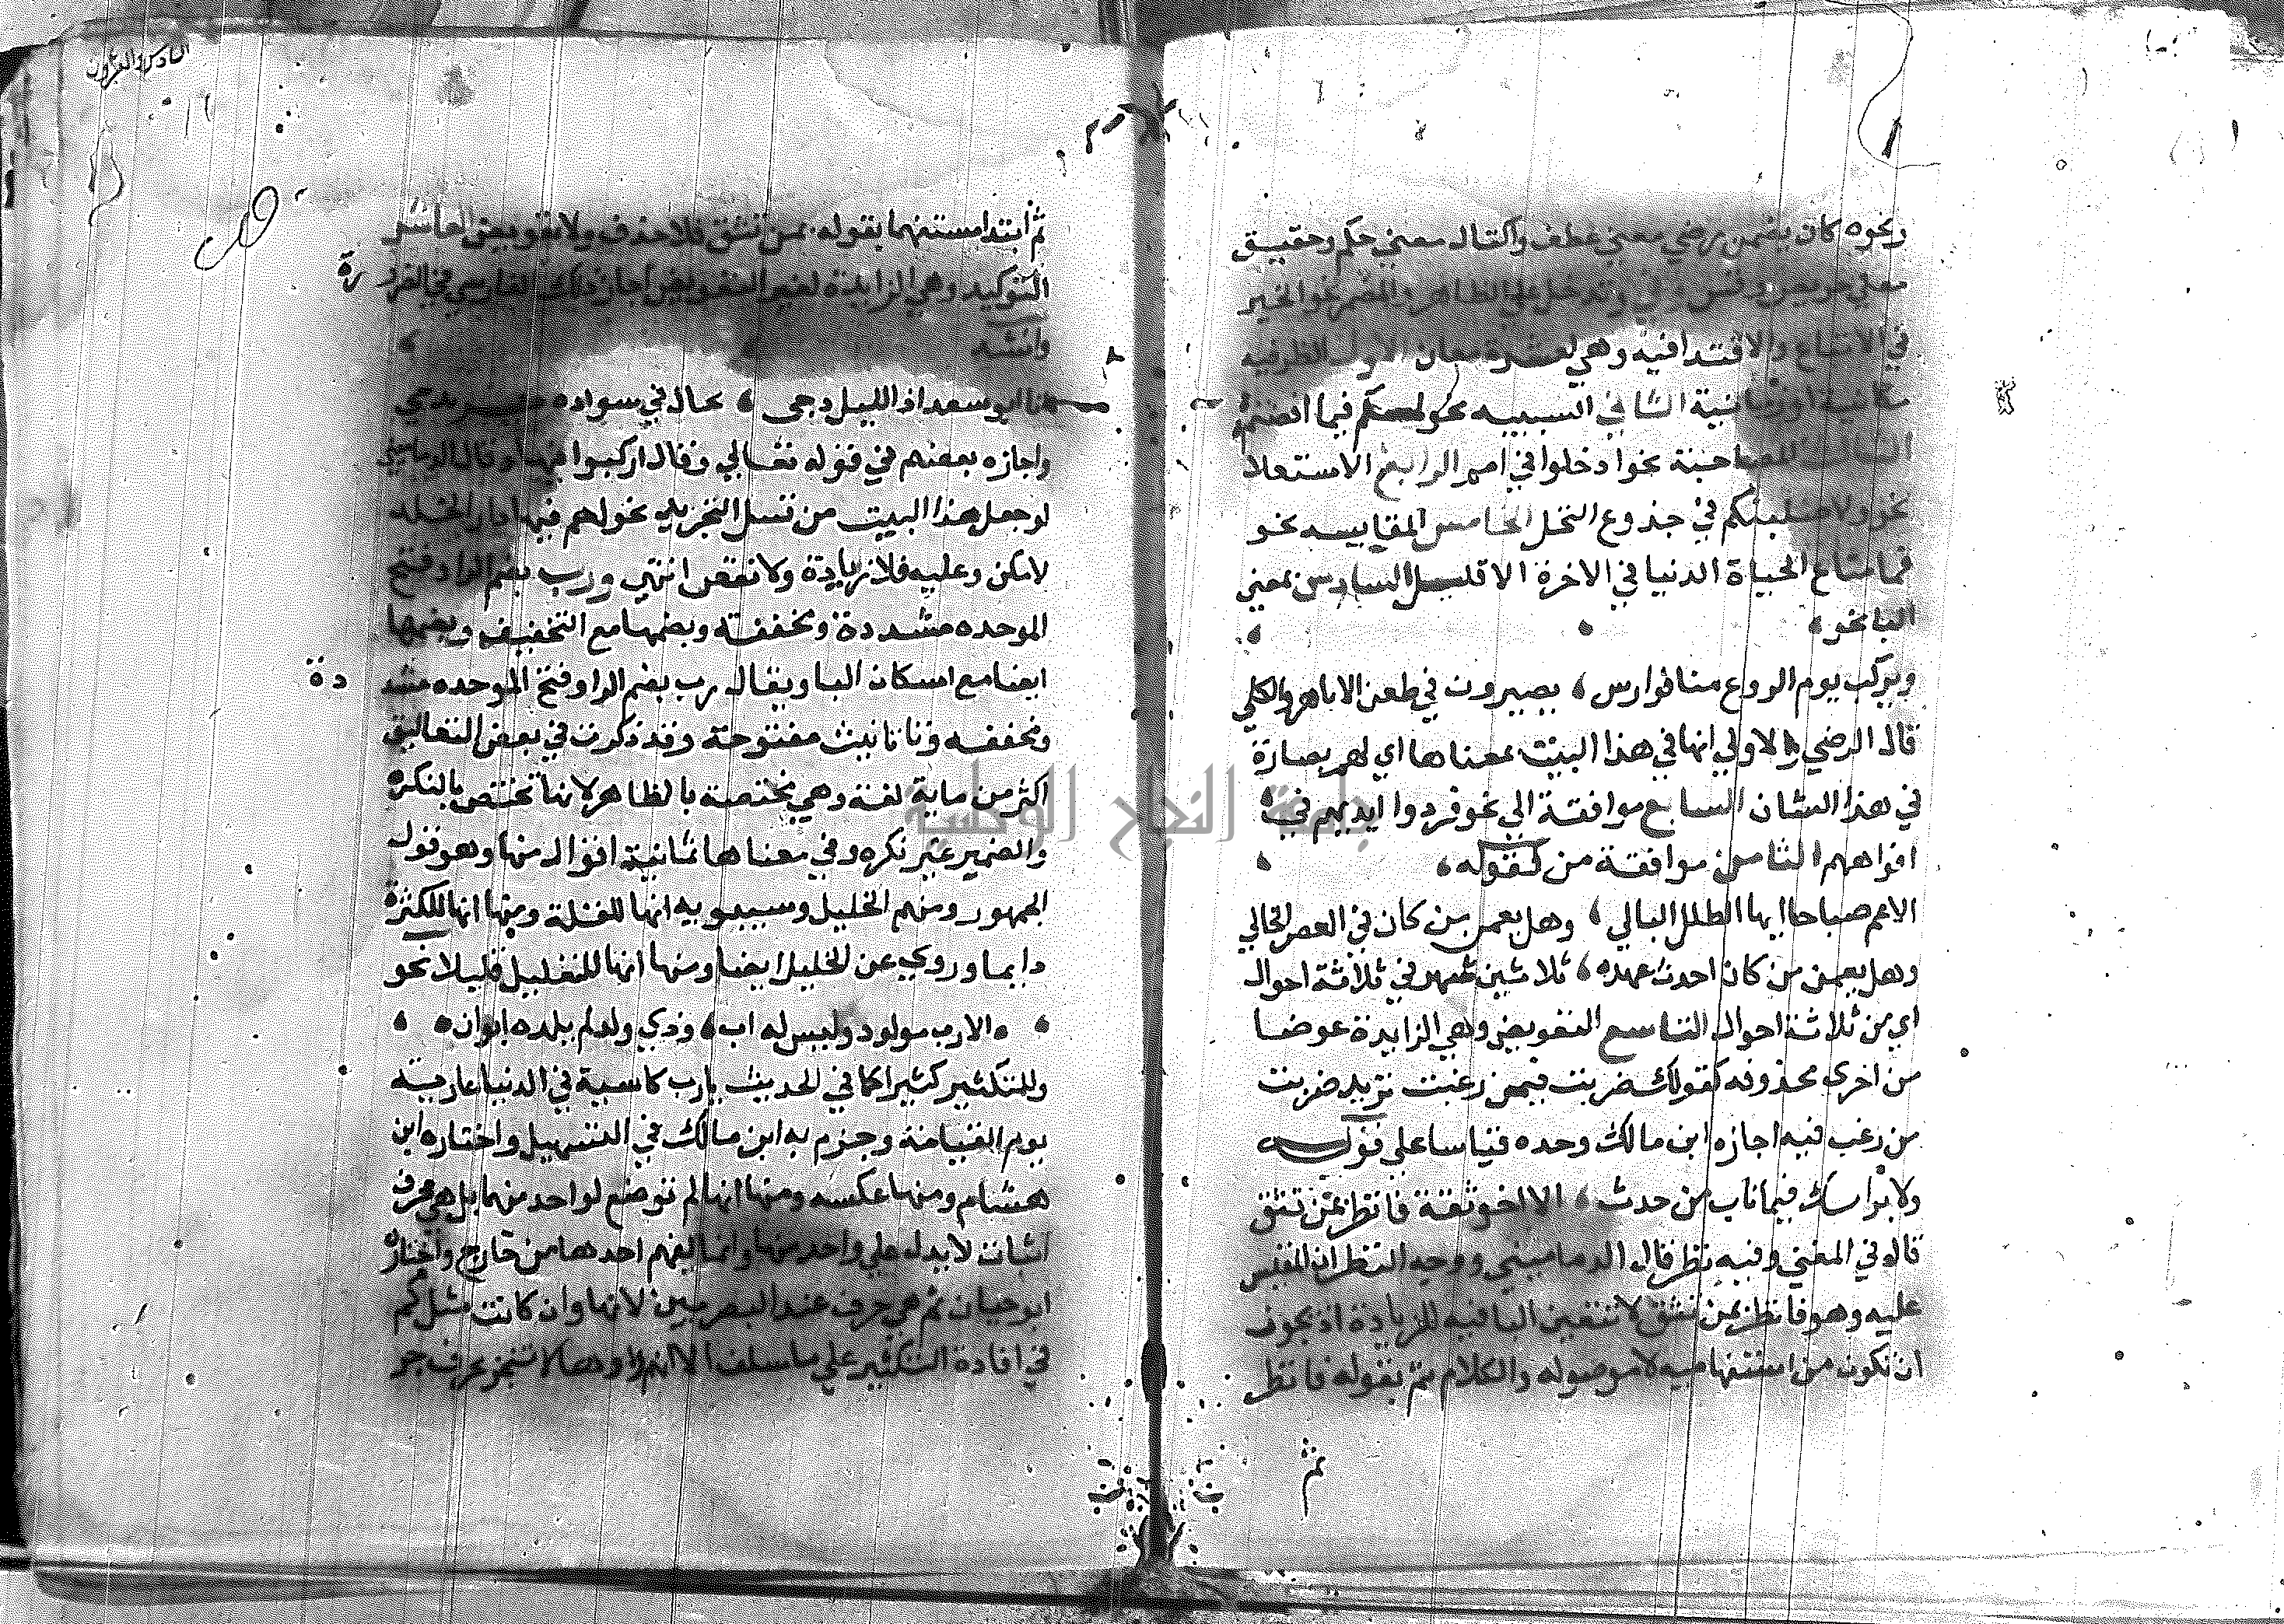 ونحوه كان يضمن رضي معني عطف واكتال معني حكم وحقيق
وتدخل علي الظاهر والمضمر نحو الخير
في الاتباع والاقتدا فيه وهي لعشرة معان الاول الظرفيه
مكانية او زمانية الثاني السببيه نحو لمسكم فيما افضتم
الثالث المصاحبة نحو ادخلوا في امم الرابع الاستعلا
نحو ولاصلبنكم في جذوع النخل الخامس المقايسه نحو
فما متاع الحياة الدنيا في الاخرة الا قليل السادس بمعني
البا نحو
ويركب يوم الروع منا فوارس ، بصيرون في طعن الاباهر والكلي
قال الرضي والاولي انها في هذا البيت بمعناها اي لهم بصارة
في هذا الشان السابع موافقة الي نحو فردوا ايديهم في
افواههم الثامن موافقة من كقوله ،
الاعم صباحا ايها الطلل البالي ، وهل يعمن من كان في العصر الخالي
وهل يعمن من كان احدث عهده ، ثلاثين شهر في ثلاثة احوال
اي من ثلاثة احوال التاسع التعويض وهي الزايدة عوضا
من اخري محذوفه كقولك ضربت فيمن رغبت تريد ضربت
من رغبت فيه اجازه ابن مالك وحده قياسا علي قوله
ولا يواسيك فيما ناب من حدث ، الا اخو ثقة فانظر بمن تثق
قاله في المغني وفيه نظر قال الدماميني ووجه النظر ان المقيس
عليه وهو فانظر بمن تثق لا تتعين البا فيه للزيادة اذ يجوز
ان تكون من استفهاميه لا موصوله والكلام تم بقوله فانظر
ثم
السادس والعشرون
ثم ابتدا مستفهما بقوله بمن تثق فلا حذف ولا تعويض العاشر
التوكيد وهي الزايدة لغير التعويض اجاز ذلك الفارسي في الضرورة
وانشد
انا ابو سعد اذ الليل دجي ، يخال في سواده يرندجي
واجازه بعضهم في قوله تعالي وقال اركبوا فيها وقال الدماميني
لو جعل هذا البيت من قبيل التجريد نحو لهم فيها دار الخلد
لامكن وعليه فلا زيادة ولا نقص انتهي ورب بضم الرا وفتح
الموحده مشددة ومخففة وبضمها مع التخفيف وبضمها
ايضا مع اسكان البا ويقال رب بضم الرا وفتح الموحده مشددة
ومخففه وتا تانيث مفتوحة وقد ذكرت في بعض التعاليق
اكثر من ماية لغة وهي مختصة بالظاهر لانها تختص بالنكره
والضمير غير نكره وفي معناها ثمانية اقوال منها وهو قول
الجمهور ومنهم الخليل وسيبويه انها للقلة ومنها انها للكثرة
دايما وروي عن الخليل ايضا ومنها انها للتقليل قليلا نحو
الارب مولود وليس له اب ، وذي ولد لم يلده ابوان
وللتكثير كثيرا كما في الحديث يارب كاسية في الدنيا عارية
يوم القيامة وجزم به ابن مالك في التسهيل واختاره ابن
هشام ومنها عكسه ومنها انها لم توضع لواحد منهما بل هي حرف
اثبات لا يدل علي واحد منهما وانما يفهم احدهما من خارج واختاره
ابو حيان ثم هي حرف عند البصريين لانها وان كانت مثل كم
في افادة التكثير علي ما سلف الا انهم لا تنجر بحرف جر